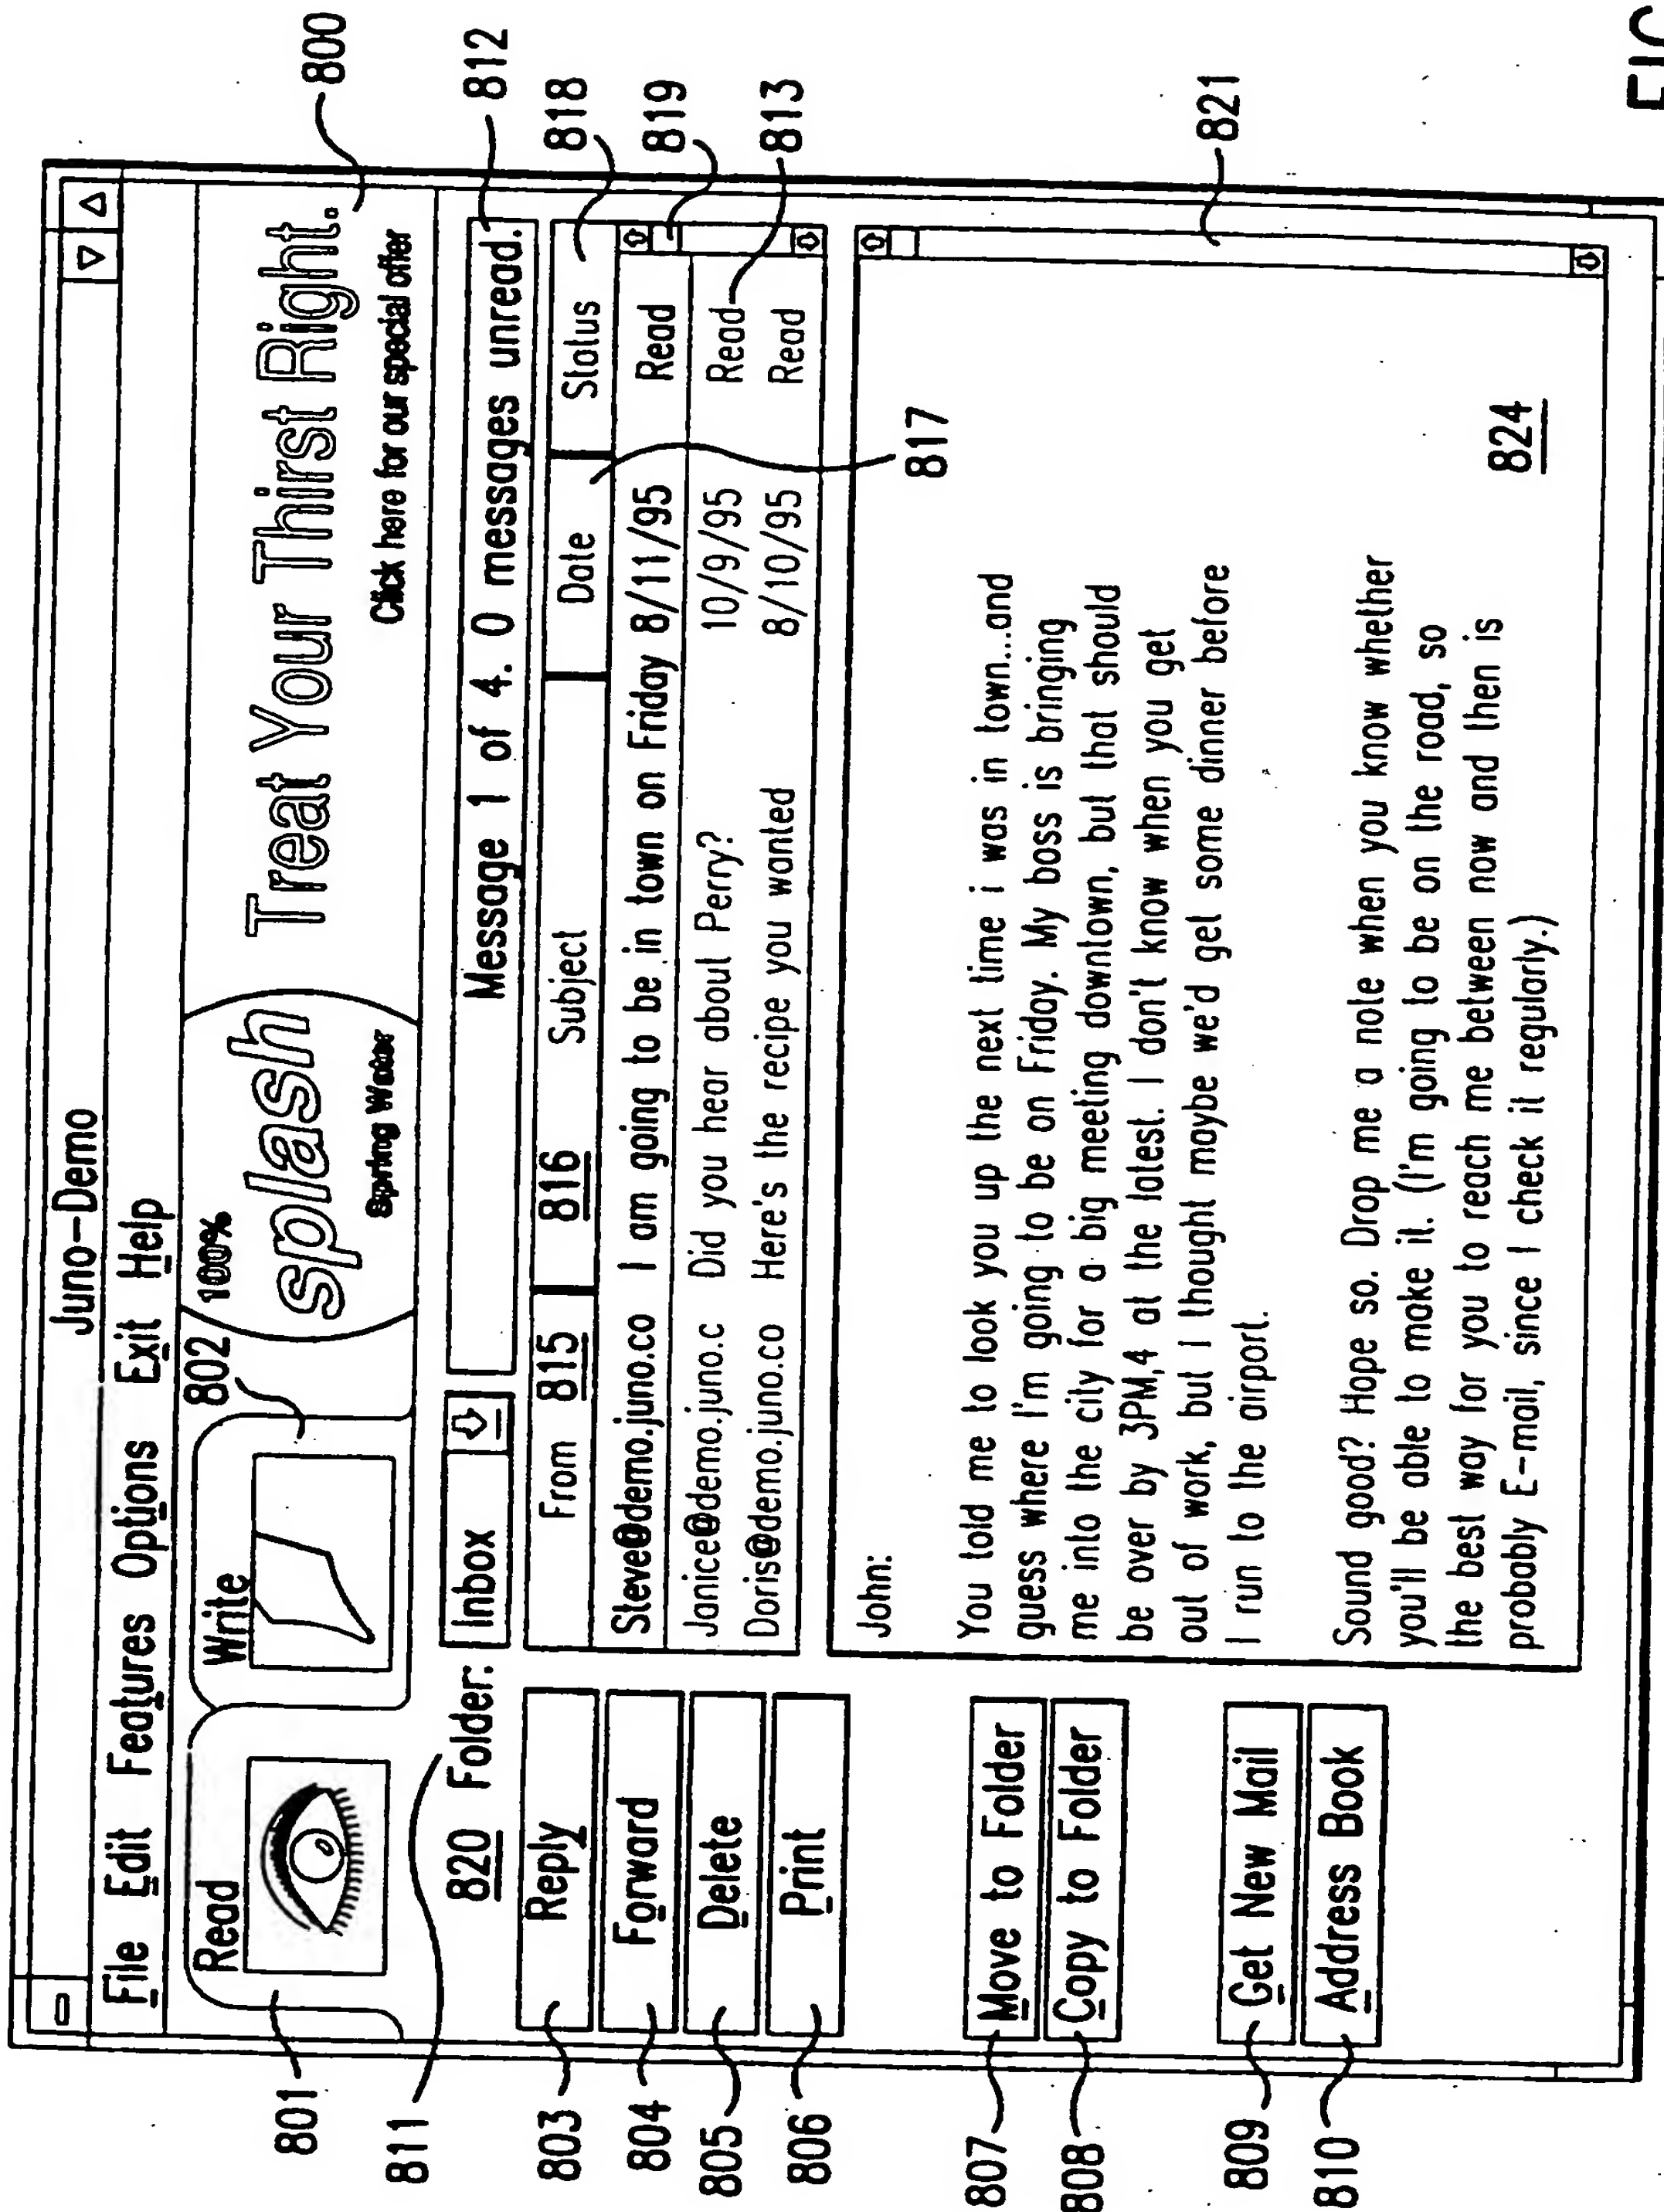 Juno-Demo
File Edit Features Options Exit Help
Read
Write
802
100%
splash
Spring Water
Treat Your Thirst Right.
Click here for our special offer
800
801
811
820 Folder: Inbox
Message 1 of 4. 0 messages unread.
812
From 815 816 Subject Date Status
818
Steve@demo.juno.co I am going to be in town on Friday 8/11/95 Read
819
Janice@demo.juno.c Did you hear about Perry? 10/9/95 Read
813
Doris@demo.juno.co Here's the recipe you wanted 8/10/95 Read
817
803 Reply
804 Forward
805 Delete
806 Print
807 Move to Folder
808 Copy to Folder
809 Get New Mail
810 Address Book
John:
You told me to look you up the next time i was in town...and
guess where I'm going to be on Friday. My boss is bringing
me into the city for a big meeting downtown, but that should
be over by 3PM,4 at the latest. I don't know when you get
out of work, but I thought maybe we'd get some dinner before
I run to the airport.
821
Sound good? Hope so. Drop me a note when you know whether
you'll be able to make it. (I'm going to be on the road, so
the best way for you to reach me between now and then is
probably E-mail, since I check it regularly.)
824